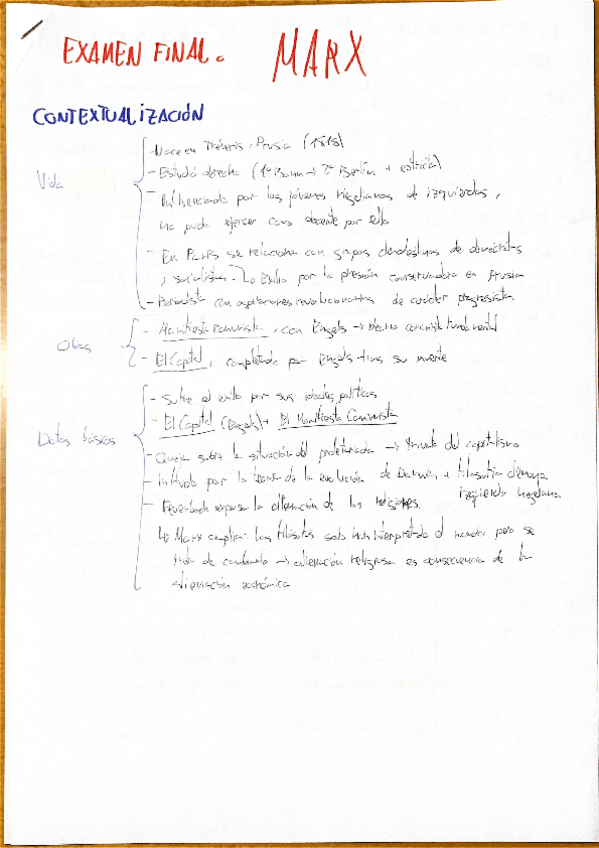 EXAMEN FINAL. MARX
CONTEXTUALIZACIÓN
Vida
- Nace en Tréveris, Prusia (1818)
- Estudió derecho (1º Bonn → 2º Berlín +
- Influenciado por los jóvenes Hegelianos de izquierdas,
no pudo ejercer como docente por ello
- En París se relaciona con grupos clandestinos de demócratas
y socialistas. Exilio por la presión conservadora en Prusia
- Periodista con aspiraciones revolucionarias de carácter progresista.
Obras
- Manifiesto comunista, con Engels → comunista fundamental
- El Capital, completada por Engels tras su muerte
Datos básicos
- Sufre el exilio por sus ideales políticos
- El Capital (Engels) + El Manifiesto Comunista
- Queja sobre la situación del proletariado → triunfo del capitalismo
- Influido por la teoría de la evolución de Darwin + filosofía alemana
izquierda hegeliana
- Feuerbach expresa la alienación de las religiones.
↳ Marx amplia: los filósofos solo han interpretado el mundo pero se
trata de cambiarlo → alienación religiosa es consecuencia de la
alienación económica